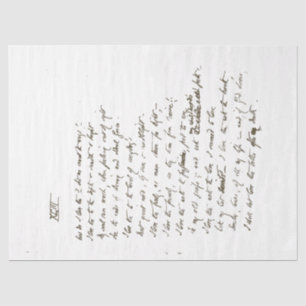 XLIII
How do I love thee? Let me count the ways!
I love thee to the depth & breadth & height
My soul can reach, when feeling out of sight
For the ends of Being and Ideal Grace.
I love thee to the level of everyday's
Most quiet need, by sun & candlelight.
I love thee freely, as men strive for Right,
I love thee purely, as they turn from Praise;
I love thee with the passion, put to use
In my old griefs, and with my childhood's faith:
I love thee with the love I seemed to lose
With my lost Saints, I love thee with the breath,
Smiles, tears, of all my life! and, if God choose,
I shall but love thee better after death.